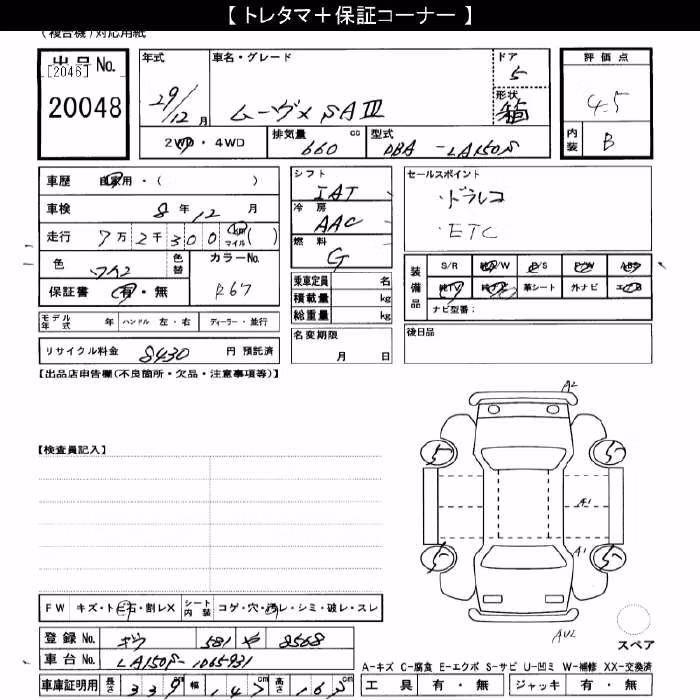 【 トレタマ＋保証コーナー 】
(複合機)対応用紙
出品 No. [2046] 20048
年式 29/12 月
車名・グレード ムーヴ X SAⅢ
ドア 5
形状 箱
評価点 4.5
内装 B
2WD・4WD
排気量 660 cc
型式 DBA - LA150S
車歴 自家用・( )
車検 8 年 12 月
走行 7万 2千 300 km マイル ( )
色 ワイン
色替
カラーNo. R67
保証書 有・無
モデル年式 年 ハンドル 左・右 ディーラー・並行
リサイクル料金 8430 円 預託済
シフト IAT
冷房 AAC
燃料 G
乗車定員 名
積載量 kg
総重量 kg
名変期限 月 日
セールスポイント
・ドラレコ
・ETC
装備品 S/R 純A/W P/S P/W ABS
純TV 純ナビ 革シート 外ナビ エアB
ナビ型番:
後日品
【出品店申告欄(不良箇所・欠品・注意事項等)】
【検査員記入】
A2
5 5
A1
A1
5 5
AU2
スペア
FW キズ・トビ石・割レX シート内装 コゲ・穴・汚レ・シミ・破レ・スレ
登録 No. 581 や 2568
車台 No. LA150S-1065931
車庫証明用 長さ 339 cm 幅 147 cm 高さ 163 cm
A-キズ C-腐食 E-エクボ S-サビ U-凹ミ W-補修 XX-交換済
工具 有・無 ジャッキ 有・無